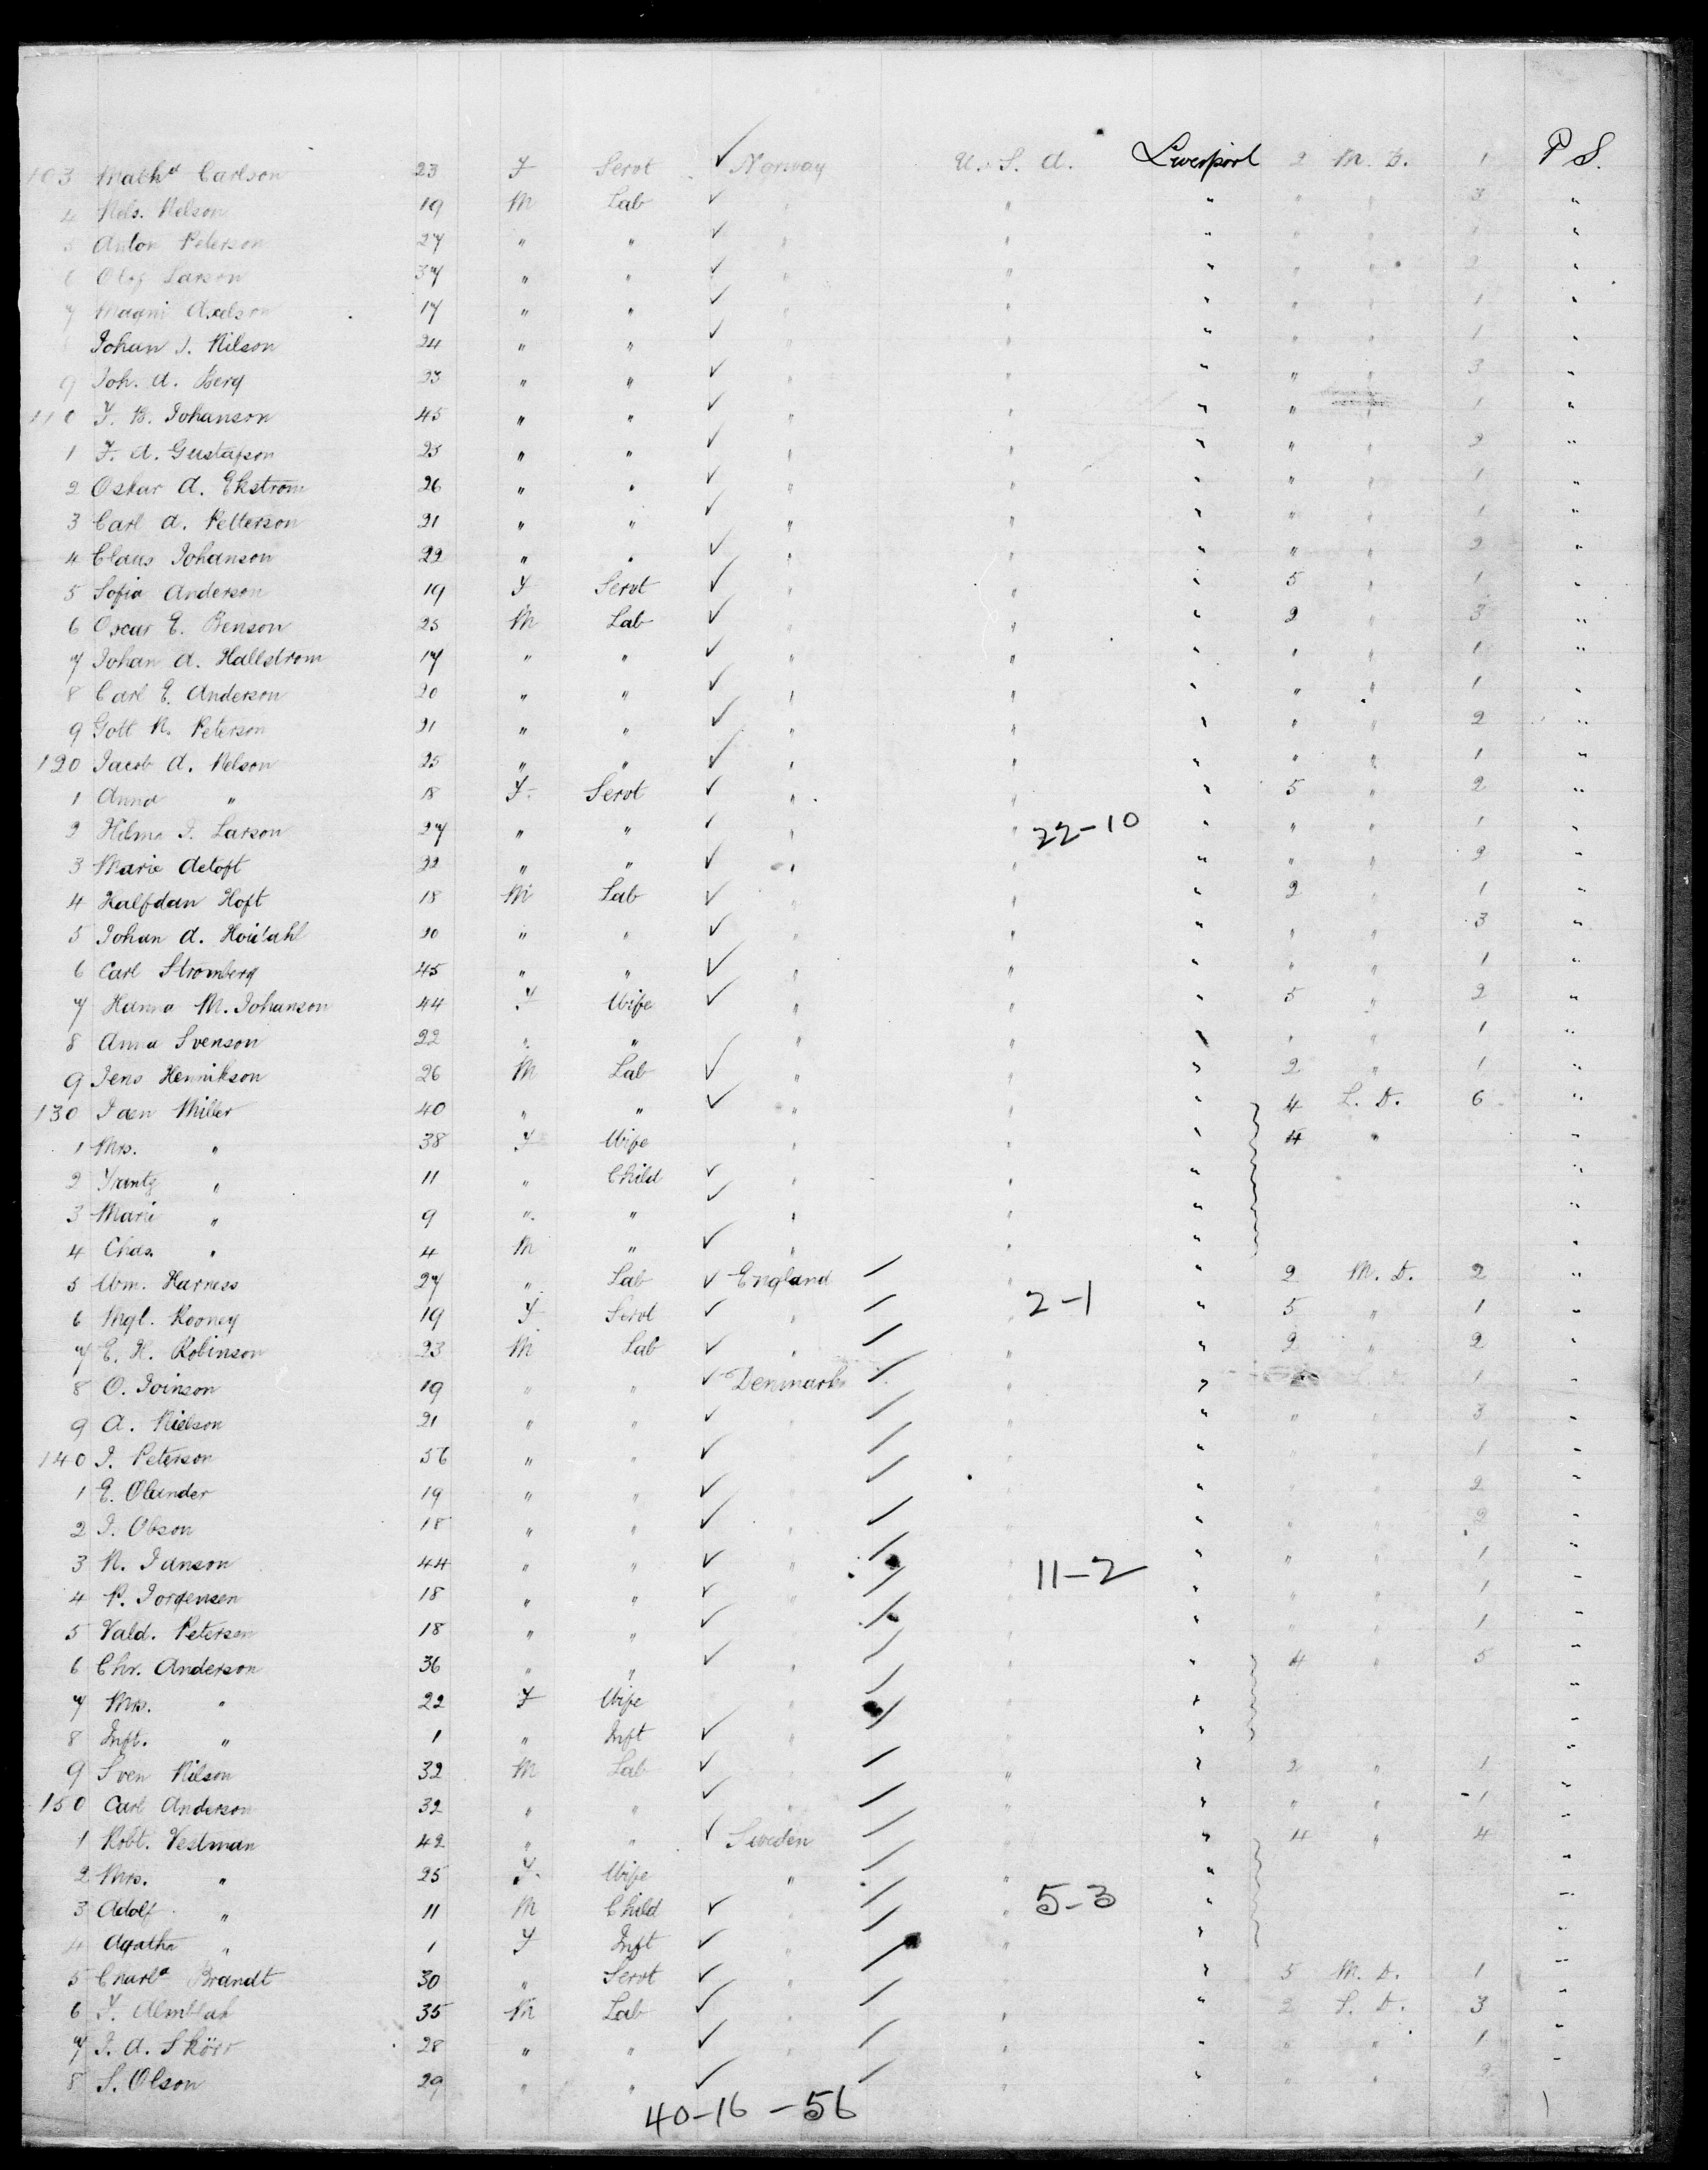 103 Mathd Carlson 23 F Servt ✓ Norway U. S. A. Liverpool 2 M. D. 1 P S.
4 Nels. Nelson 19 M Lab ✓ " " " " " 3 "
5 Anton Peterson 27 " " ✓ " " " " " 1 "
6 Olof Larson 37 " " ✓ " " " " " 2 "
7 Magni Axelson 17 " " ✓ " " " " " 1 "
Johan J. Nilson 24 " " ✓ " " " " " 1 "
9 Joh. A. Berg 23 " " ✓ " " " " " 3 "
110 F. B. Johanson 45 " " ✓ " " " " " 1 "
1 F. A. Gustafson 25 " " ✓ " " " " " 2 "
2 Oskar A. Ekstrom 26 " " ✓ " " " " " 1 "
3 Carl A. Petterson 21 " " ✓ " " " " " 1 "
4 Claus Johanson 22 " " ✓ " " " " " 2 "
5 Sofia Anderson 19 F Servt ✓ " " " 5 " 1 "
6 Oscar E. Benson 25 M Lab ✓ " " " 2 " 3 "
7 Johan A. Hallstrom 17 " " ✓ " " " " " 1 "
8 Carl E. Anderson 20 " " ✓ " " " " " 1 "
9 Gott N. Peterson 21 " " ✓ " " " " " 2 "
120 Jacob A. Nelson 25 " " ✓ " " " " " 1 "
1 Anna " 18 F. Servt ✓ " " " 5 " 2 "
2 Hilma J. Larson 27 " " ✓ " " 22-10 " " " 1 "
3 Marie Aetoft 22 " " ✓ " " " " 2 "
4 Halfdan Hoft 18 M Lab ✓ " " " 2 " 1 "
5 Johan A. 20 " " ✓ " " " " " 3 "
6 Carl Stromberg 45 " " ✓ " " " " " 1 "
7 Hanna M. Johanson 44 F Wife ✓ " " " 5 " 2 "
8 Anna Svenson 22 " " ✓ " " " " " 1 "
9 Jens Henrikson 26 M Lab ✓ " " " 2 " 1 "
130 Miller 40 " " ✓ " " " 4 L. D. 6 "
1 Mrs. " 38 F Wife " " " 4 " "
2 Frantz " 11 " Child ✓ " " " "
3 Marie " 9 " " ✓ " " " "
4 Chas. " 4 M " ✓ " " " "
5 Wm. Harness 27 " Lab ✓ England / " " 2 M. D. 2 "
6 Mgt. Rooney 19 F Servt ✓ " / " 2-1 " 5 " 1 "
7 E. H. Robinson 23 M Lab ✓ " / " " 2 " 2 "
8 O. Joinson 19 " " ✓ Denmark / " " 1 "
9 A. Nielson 21 " " ✓ " / " " " " 3 "
140 J. Peterson 56 " " ✓ " / " " " " 1 "
1 E. Olander 19 " " ✓ " / " " " " 2 "
2 J. Olson 18 " " ✓ " / " " " " 2 "
3 N. Janson 44 " " ✓ " / " 11-2 " " " 1 "
4 P. Jorgensen 18 " " ✓ " / " " " " 1 "
5 Vald. Petersen 18 " " ✓ " / " " " " 1 "
6 Chr. Anderson 36 " " ✓ " / " " 4 " 5 "
7 Mrs. " 22 F Wife " / " " "
8 Inft. " 1 " Inft ✓ " / " " "
9 Sven Nilson 32 M Lab ✓ " / " " 2 " 1 "
150 Carl Anderson 32 " " ✓ " / " " " " 1 "
1 Robt. Vestman 42 " " ✓ Sweden / " " 4 " 4 "
2 Mrs. " 25 F. Wife " / " " "
3 Adolf " 11 M Child ✓ " / " 5-3 " "
4 Agatha " 1 F Inft ✓ " / " " "
5 Charla Brandt 30 " Servt ✓ " / " " 5 M. D. 1 "
6 35 M Lab ✓ " / " " 2 S. D. 3 "
7 J. A. Skörr 28 " " ✓ " / " " " " 1 "
8 S. Olson 29 " " ✓ " / " " " " 2 "
40-16-56